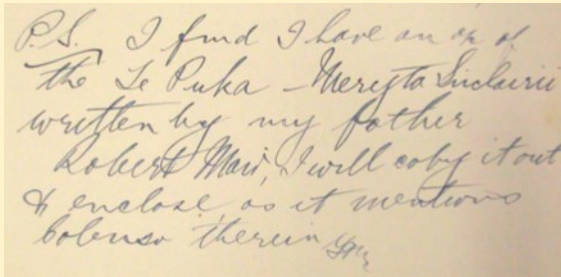 P.S. I find I have an a/c of
the Te Puka – Meryta Sinclairii
written by my father
Robert Mair, I will coby it out
& enclose, as it mentions
Colenso therein